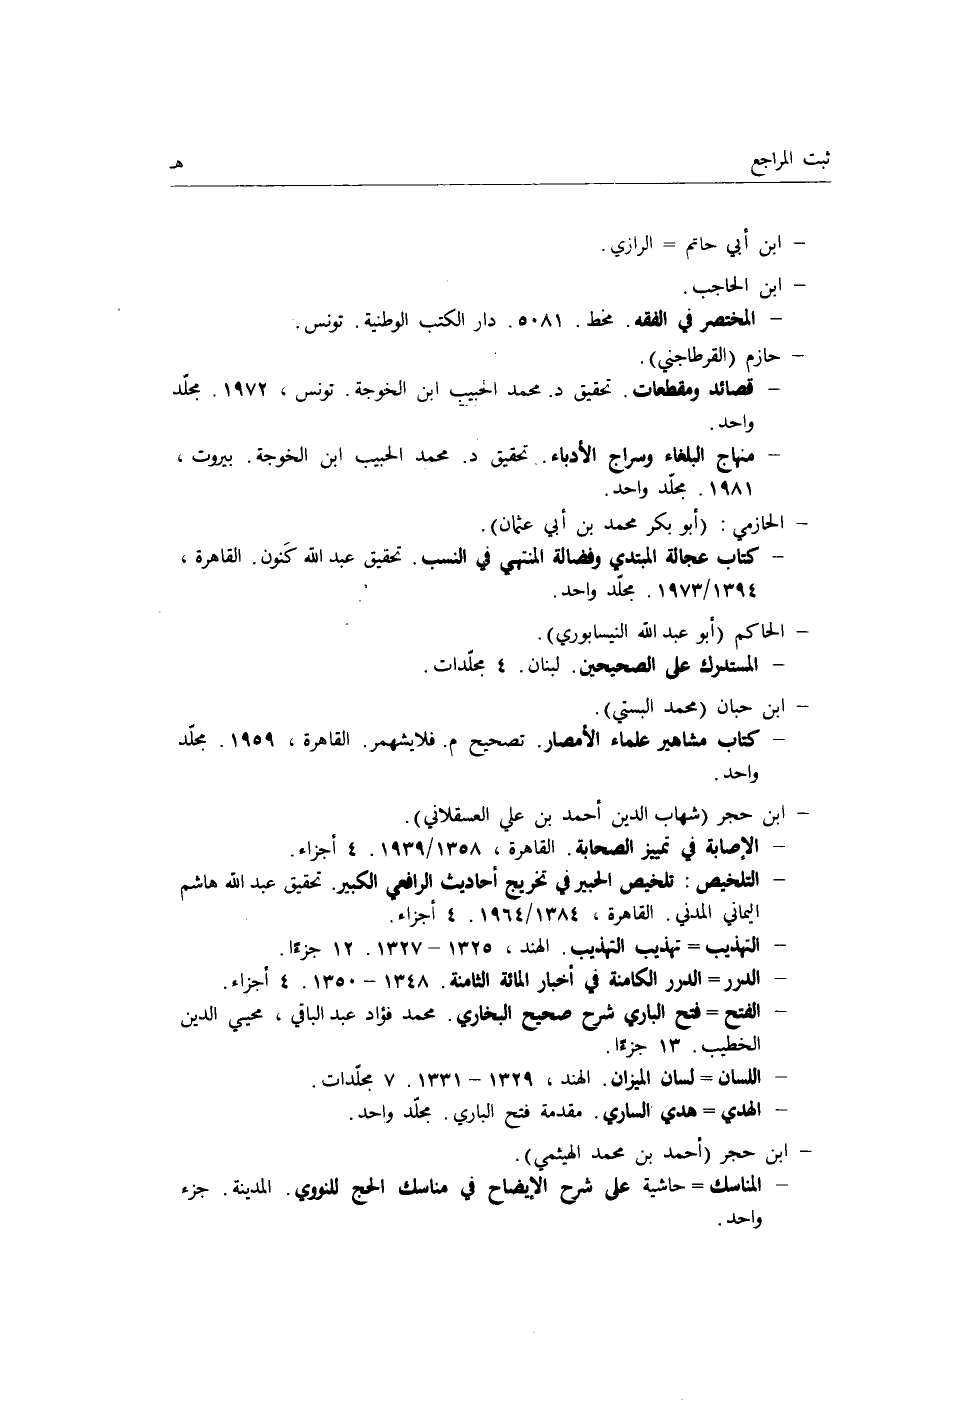 ثبت المراجع هـ
– ابن أبي حاتم = الرازي.
– ابن الحاجب.
– المختصر في الفقه. مخط. ٥٠٨١. دار الكتب الوطنية. تونس.
– حازم (القرطاجني).
– قصائد ومقطعات. تحقيق د. محمد الحبيب ابن الخوجة. تونس ، ١٩٧٢. مجلّد
واحد.
– منهاج البلغاء وسراج الأدباء. تحقيق د. محمد الحبيب ابن الخوجة. بيروت ،
١٩٨١. مجلّد واحد.
– الحازمي : (أبو بكر محمد بن أبي عثمان).
– كتاب عجالة المبتدي وفضالة المنتهي في النسب. تحقيق عبد الله كَنون. القاهرة ،
١٩٧٣/١٣٩٤. مجلّد واحد.
– الحاكم (أبو عبد الله النيسابوري).
– المستدرك على الصحيحين. لبنان. ٤ مجلّدات.
– ابن حبان (محمد البستي).
– كتاب مشاهير علماء الأمصار. تصحيح م. فلايشهمر. القاهرة ، ١٩٥٩. مجلّد
واحد.
– ابن حجر (شهاب الدين أحمد بن علي العسقلاني).
– الإصابة في تمييز الصحابة. القاهرة ، ١٩٣٩/١٣٥٨. ٤ أجزاء.
– التلخيص : تلخيص الحبير في تخريج أحاديث الرافعي الكبير. تحقيق عبد الله هاشم
اليماني المدني. القاهرة ، ١٩٦٤/١٣٨٤. ٤ أجزاء.
– التهذيب = تهذيب التهذيب. الهند ، ١٣٢٥ – ١٣٢٧. ١٢ جزءًا.
– الدرر = الدرر الكامنة في أخبار المائة الثامنة. ١٣٤٨ – ١٣٥٠. ٤ أجزاء.
– الفتح = فتح الباري شرح صحيح البخاري. محمد فؤاد عبد الباقي ، محيي الدين
الخطيب. ١٣ جزءًا.
– اللسان = لسان الميزان. الهند ، ١٣٢٩ – ١٣٣١. ٧ مجلّدات.
– الهدي = هدي الساري. مقدمة فتح الباري. مجلّد واحد.
– ابن حجر (أحمد بن محمد الهيثمي).
– المناسك = حاشية على شرح الإيضاح في مناسك الحج للنووي. المدينة. جزء
واحد.